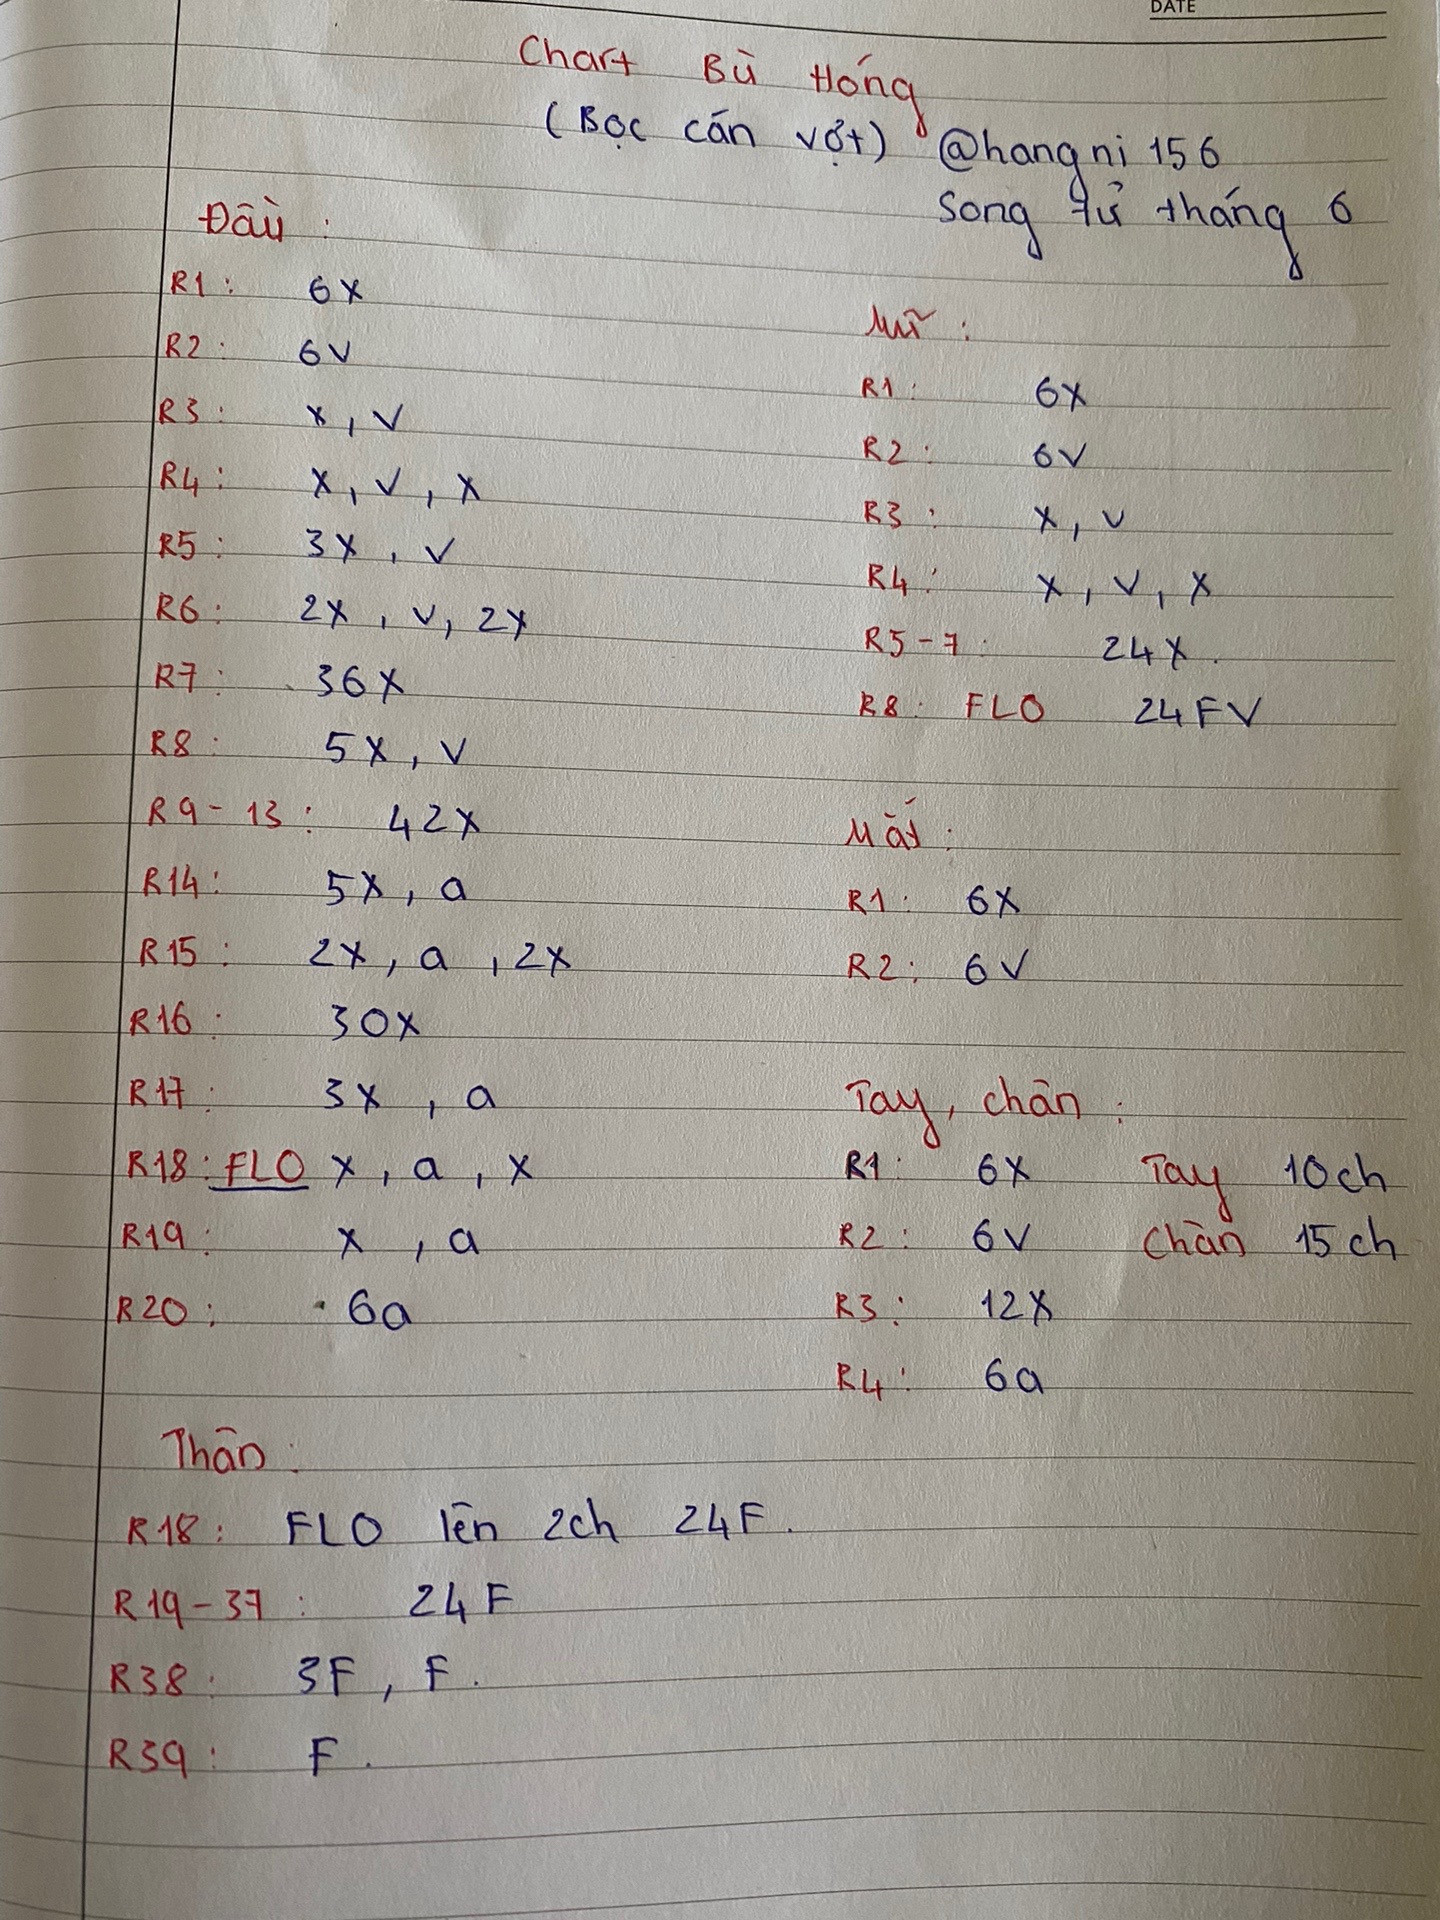 DATE
Chart Bù Hóng
(Bọc cán vợt) @hangni156
Song tử tháng 6
Đầu:
R1: 6X
R2: 6V
R3: X, V
R4: X, V, X
R5: 3X, V
R6: 2X, V, 2X
R7: 36X
R8: 5X, V
R9-13: 42X
R14: 5X, a
R15: 2X, a, 2X
R16: 30X
R17: 3X, a
R18: FLO X, a, X
R19: X, a
R20: 6a
Mũ:
R1: 6X
R2: 6V
R3: X, V
R4: X, V, X
R5-7: 24X.
R8: FLO 24FV
Mắt:
R1: 6X
R2: 6V
Tay, chân:
R1: 6X Tay 10ch
R2: 6V Chân 15ch
R3: 12X
R4: 6a
Thân:
R18: FLO lên 2ch 24F.
R19-37: 24F
R38: 3F, F.
R39: F.